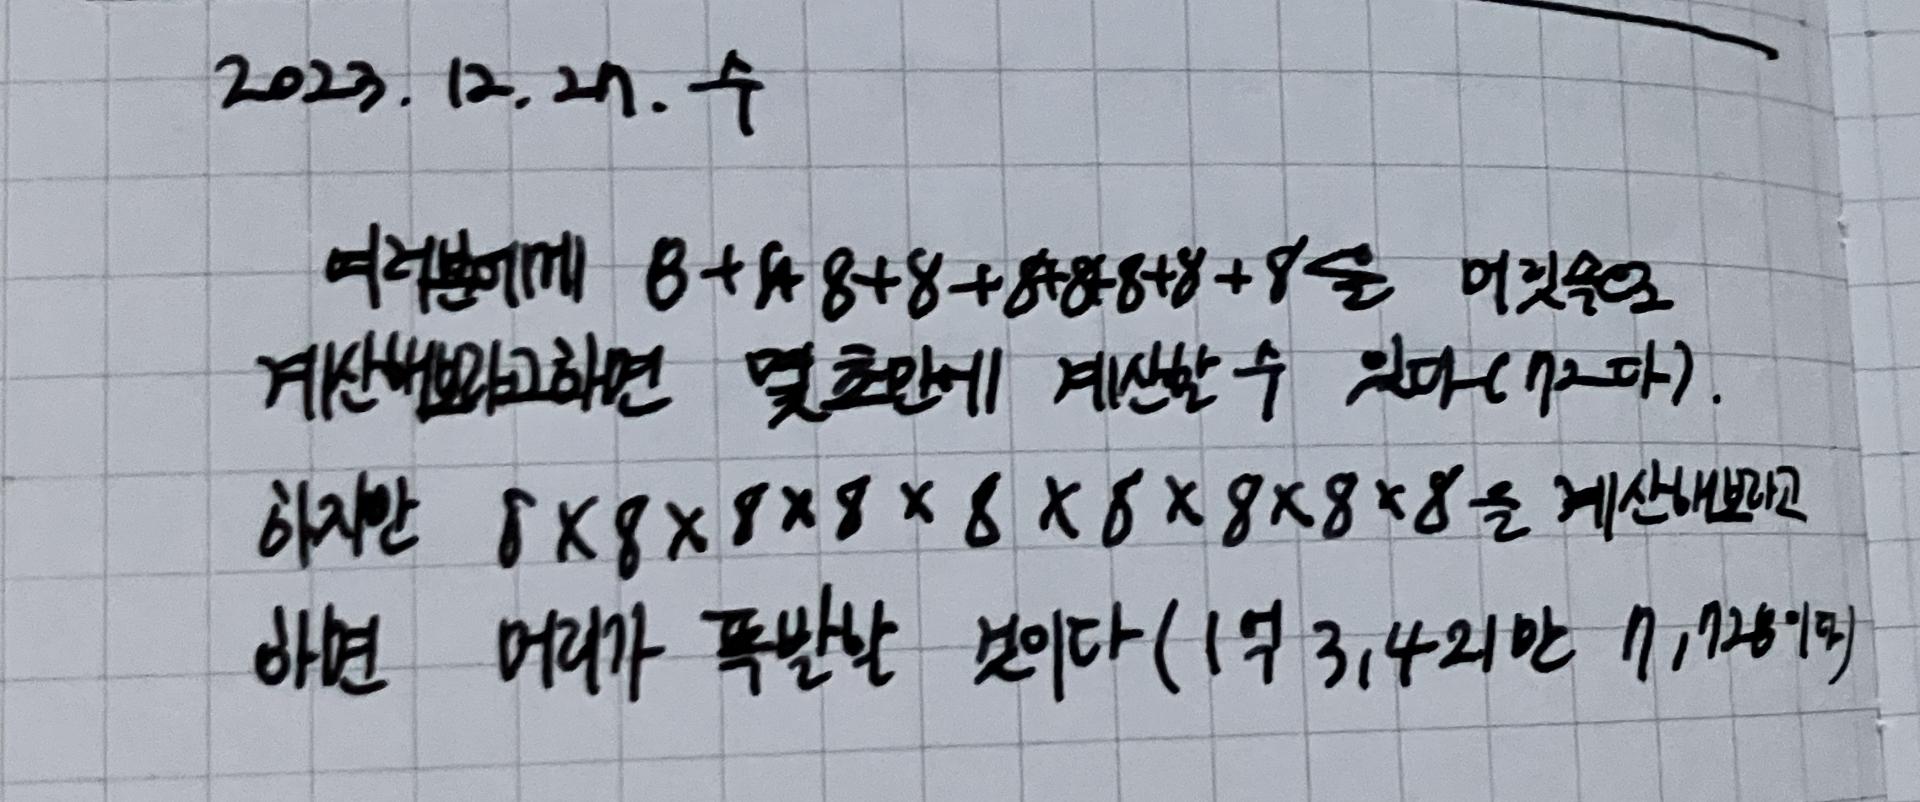 2023. 12. 27. 수
여러분에게 8+8+8+8+8+8+8+8+8을 머릿속으로
계산해보라고하면 몇초만에 계산할 수 있다(72다).
하지만 8×8×8×8×8×8×8×8×8을 계산해보라고
하면 머리가 폭발할 것이다(1억 3,421만 7,728이다)